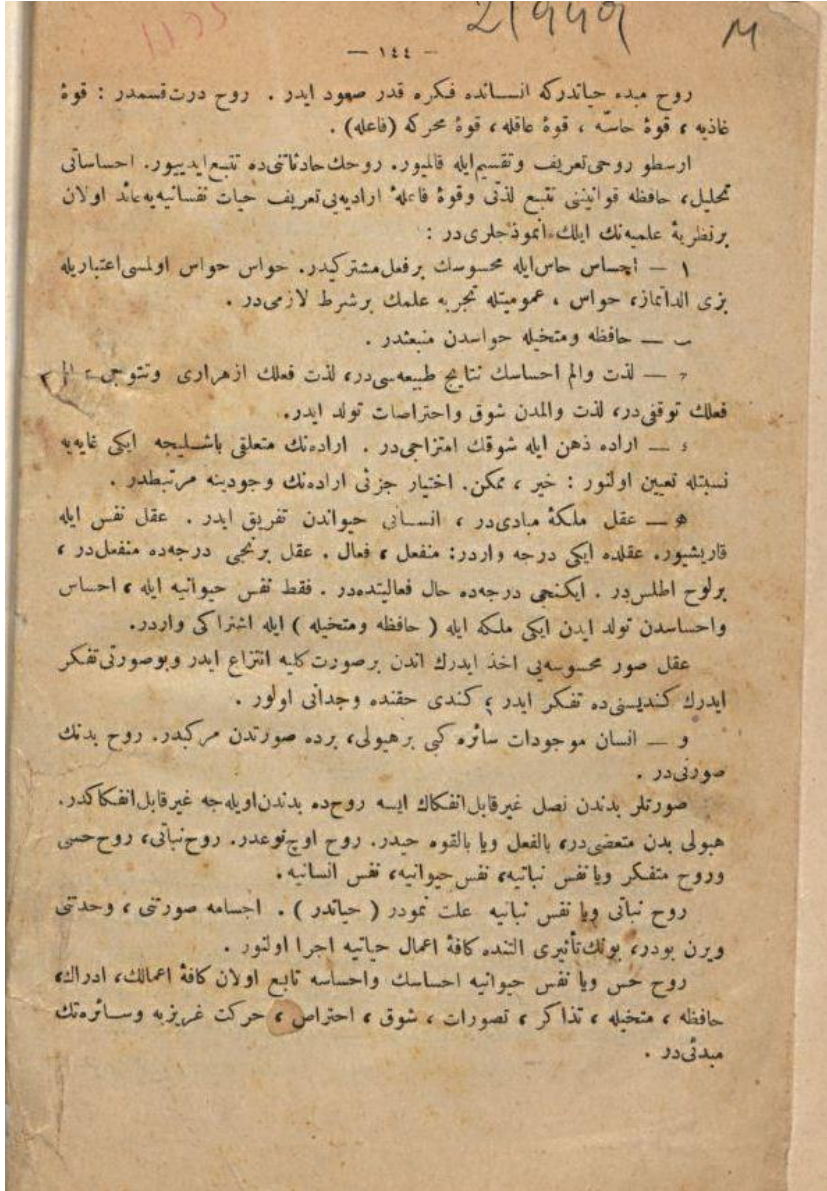 21949
M
— ١٤٤ —
روح مبدء حیاتدركه انسانده فكره قدر صعود ایدر . روح درت قسمدر : قوهٔ
غاذیه ، قوهٔ حاسّه ، قوهٔ عاقله ، قوهٔ محركه (فاعله) .
ارسطو روحی تعریف وتقسیم ایله قالمیور. روحك حادثاتنی ده تتبع ایدییور. احساساتی
تحلیل، حافظه قوانیننی تتبع لذتی وقوهٔ فاعلهٔ ارادیه یی تعریف حیات نفسانیه یه عائد اولان
برنظریهٔ علمیه نك ایلك انموذجلری در :
١ — احساس حاس ایله محسوسك برفعل مشتركیدر. حواس حواس اولمسی اعتباریله
بزی الداتماز، حواس ، عمومیتله تجربه علمك برشرط لازمی در .
ب — حافظه ومتخیله حواسدن منبعثدر .
ج — لذت والم احساسك نتایج طبیعه سی در، لذت فعلك ازهراری وتتوجی ، الم
فعلك توقفی در، لذت والمدن شوق واحتراصات تولد ایدر.
د — اراده ذهن ایله شوقك امتزاجی در . اراده نك متعلقی باشلیجه ایكی غایه یه
نسبتله تعیین اولنور : خیر ، ممكن. اختیار جزئی اراده نك وجودینه مرتبطدر .
ه — عقل ملكهٔ مبادی در ، انسانی حیواندن تفریق ایدر . عقل نفس ایله
قاریشیور. عقلده ایكی درجه واردر: منفعل ، فعال . عقل برنجی درجه ده منفعل در ،
برلوح اطلس در . ایكنجی درجه ده حال فعالیتده در . فقط نفس حیوانیه ایله ، احساس
واحساسدن تولد ایدن ایكی ملكه ایله ( حافظه ومتخیله ) ایله اشتراكی واردر.
عقل صور محسوسه یی اخذ ایدرك اندن برصورت كلیه انتزاع ایدر وبوصورتی تفكر
ایدرك كندیسنی ده تفكر ایدر ؛ كندی حقنده وجدانی اولور .
و — انسان موجودات سائره كبی برهیولی، برده صورتدن مركبدر. روح بدنك
صورتی در .
صورتلر بدندن نصل غیرقابل انفكاك ایسه روح ده بدندن اویله جه غیرقابل انفكاكدر.
هیولی بدن متعضی در، بالفعل ویا بالقوه حیدر. روح اوچ نوعدر. روح نباتی، روح حسی
وروح متفكر ویا نفس نباتیه، نفس حیوانیه، نفس انسانیه.
روح نباتی ویا نفس نباتیه علت نمودر ( حیاتدر ) . اجسامه صورتنی ، وحدتنی
ویرن بودر، بونك تأثیری التنده كافهٔ اعمال حیاتیه اجرا اولنور .
روح حس ویا نفس حیوانیه احساسك واحساسه تابع اولان كافهٔ اعمالك، ادراك،
حافظه ، متخیله ، تذاكر ، تصورات ، شوق ، احتراص ، حركت غریزیه وسائره نك
مبدئی در .